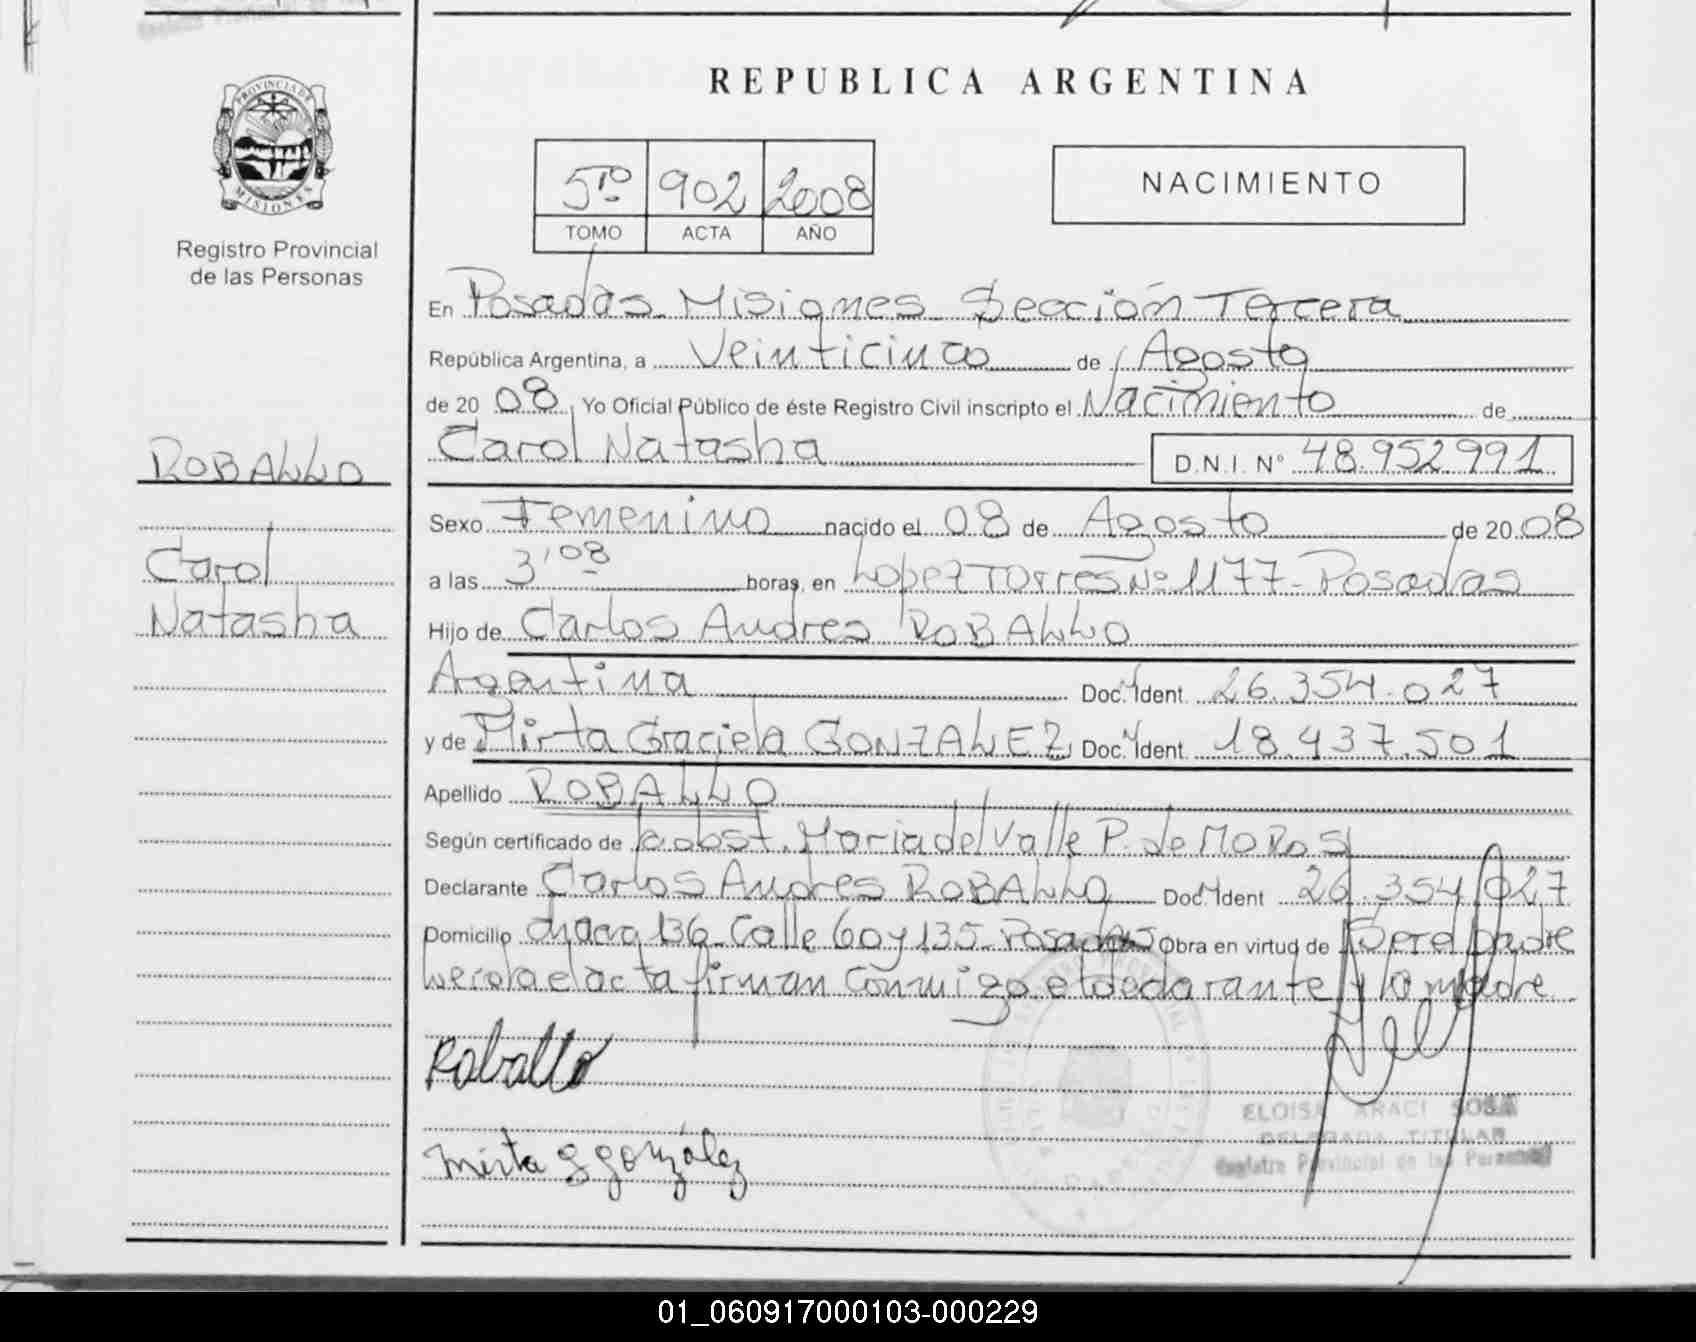 PROVINCIA DE
MISIONES
Registro Provincial
de las Personas
ROBALLO
Carol
Natasha
REPUBLICA ARGENTINA
5to 902 2008
TOMO ACTA AÑO
NACIMIENTO
En Posadas Misiones Sección Tercera
República Argentina, a Veinticinco de Agosto
de 20 08, Yo Oficial Público de éste Registro Civil inscripto el Nacimiento de
Carol Natasha D.N.I. Nº 48.952.991
Sexo Femenino nacido el 08 de Agosto de 20 08
a las 3'08 horas, en Lopez Torres Nº 1177 - Posadas
Hijo de Carlos Andres ROBALLO
Agentina Doc. Ident. 26.354.027
y de Mirta Graciela GONZALEZ Doc. Ident. 18.437.501
Apellido ROBALLO
Según certificado de la obst. Maria del Valle P. de MOROS
Declarante Carlos Andres ROBALLO Doc. Ident 26.354.027
Domicilio chacra 136 Calle 60 y 135 - Posadas Obra en virtud de Ser el padre
Leida el acta firman conmigo el declarante y la madre
Roballo
Mirta G gonzález
ELOISA ARACI SOSA
DELEGADA TITULAR
Registro Provincial de las Personas
01_060917000103-000229